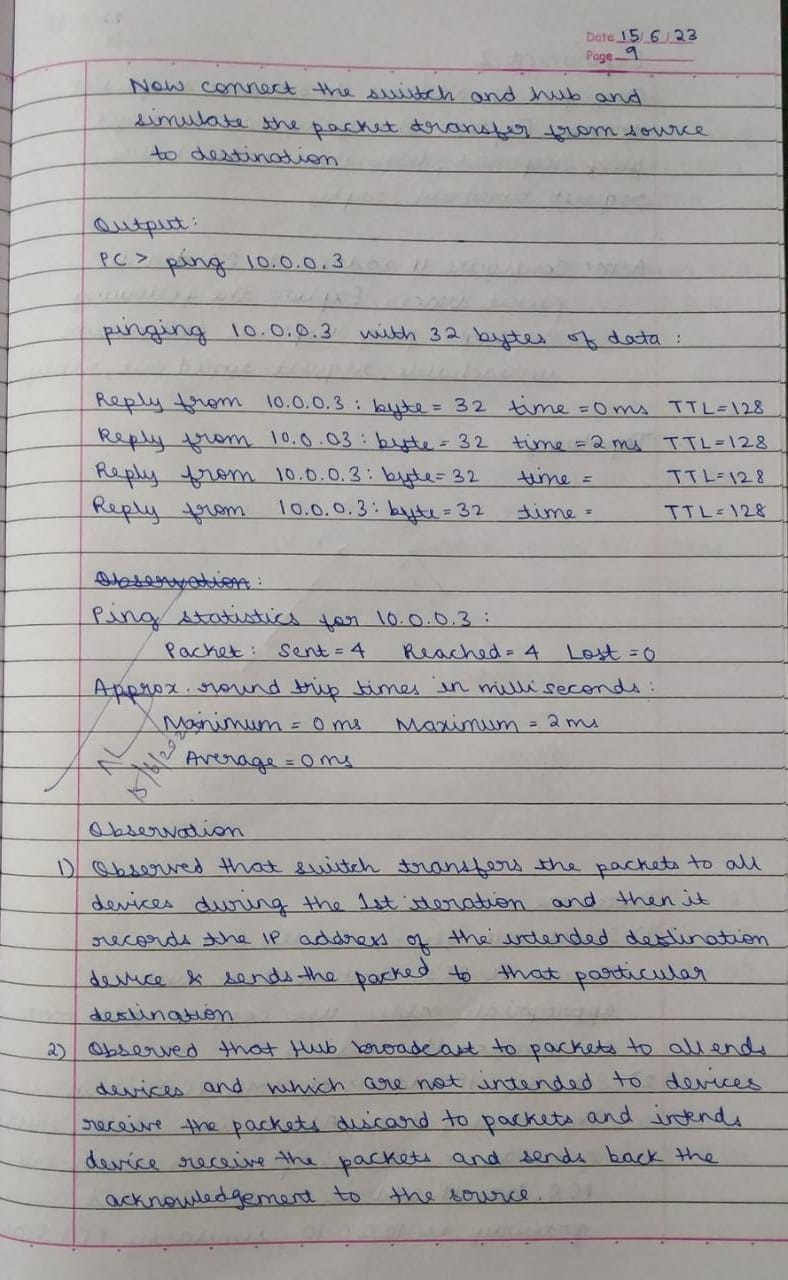 Date 15/6/23
Page 9
Now connect the switch and hub and
simulate the packet transfer from source
to destination
Output:
PC > ping 10.0.0.3
pinging 10.0.0.3 with 32 bytes of data :
Reply from 10.0.0.3 : byte = 32 time = 0 ms TTL=128
Reply from 10.0.03 : byte = 32 time = 2 ms TTL=128
Reply from 10.0.0.3 : byte = 32 time = TTL=128
Reply from 10.0.0.3 : byte = 32 time = TTL=128
Observation :
Ping statistics for 10.0.0.3 :
Packet : Sent = 4 Reached = 4 Lost = 0
Approx. round trip times in milli seconds :
Manimum = 0 ms Maximum = 2 ms
Average = 0 ms
Observation
1) Observed that switch transfers the packets to all
devices during the 1st iteration and then it
records the IP address of the intended destination
device & sends the packed to that particular
destination
2) Observed that Hub broadcast to packets to all ends
devices and which are not intended to devices
receive the packets discard to packets and intends
device receive the packets and sends back the
acknowledgement to the source.